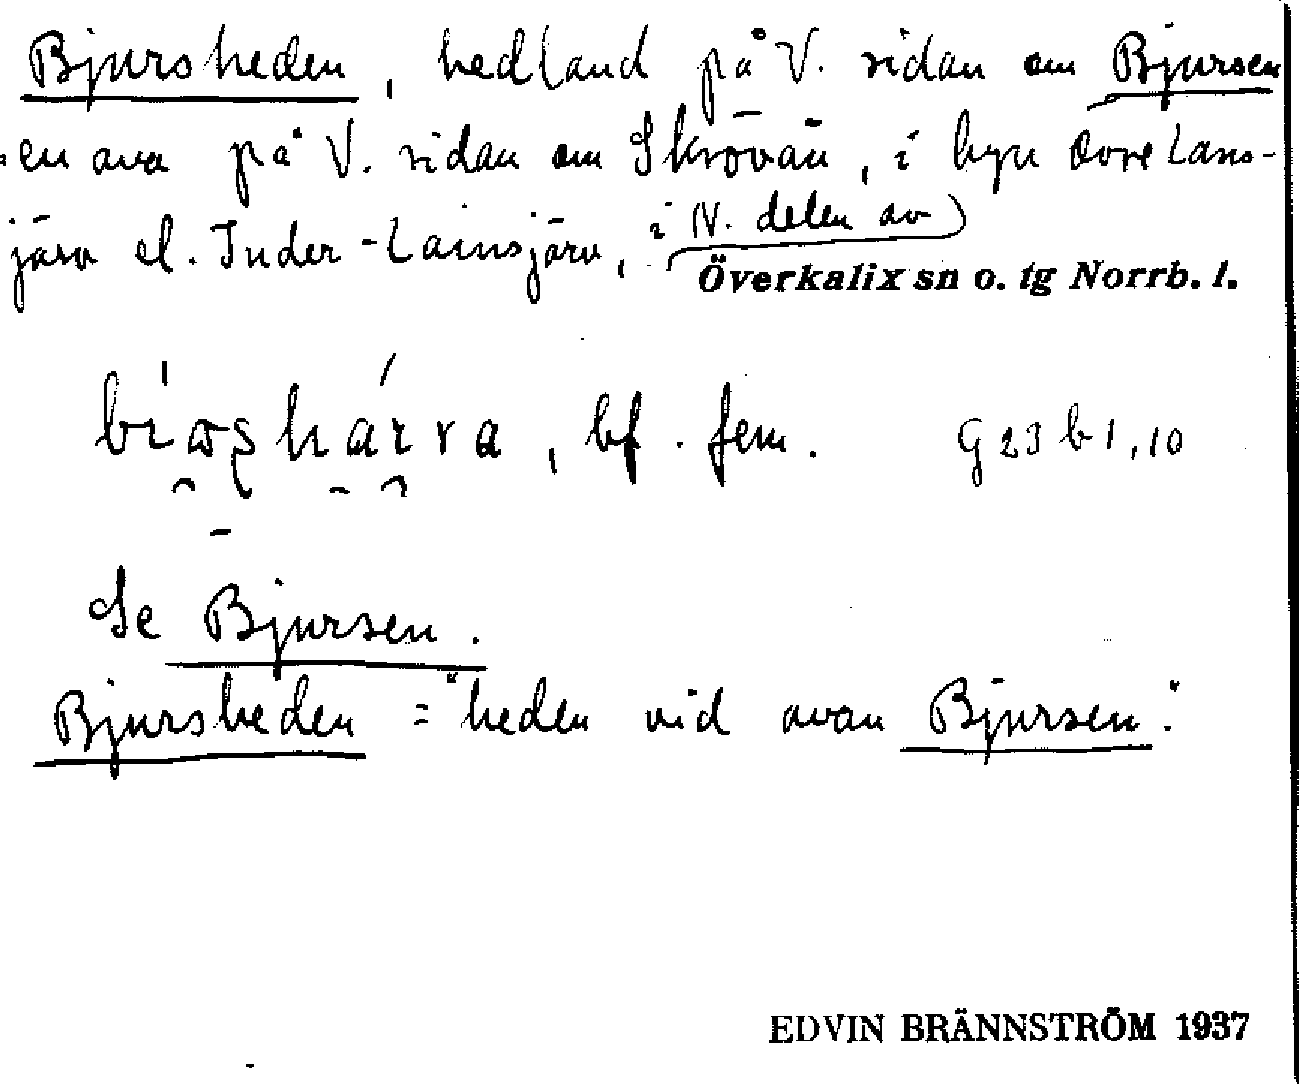 Bjursheden, hedland på V. sidan om Bjursen
en ava på V. sidan om Skrövån, i byn Övre Lans-
järv el. Inder-Lainsjärv, i N. delen av
Överkalix sn o. tg Norrb. l.
bf. fem. G23 b 1,10
Se Bjursen.
Bjursheden = "heden vid avan Bjursen".
EDVIN BRÄNNSTRÖM 1937